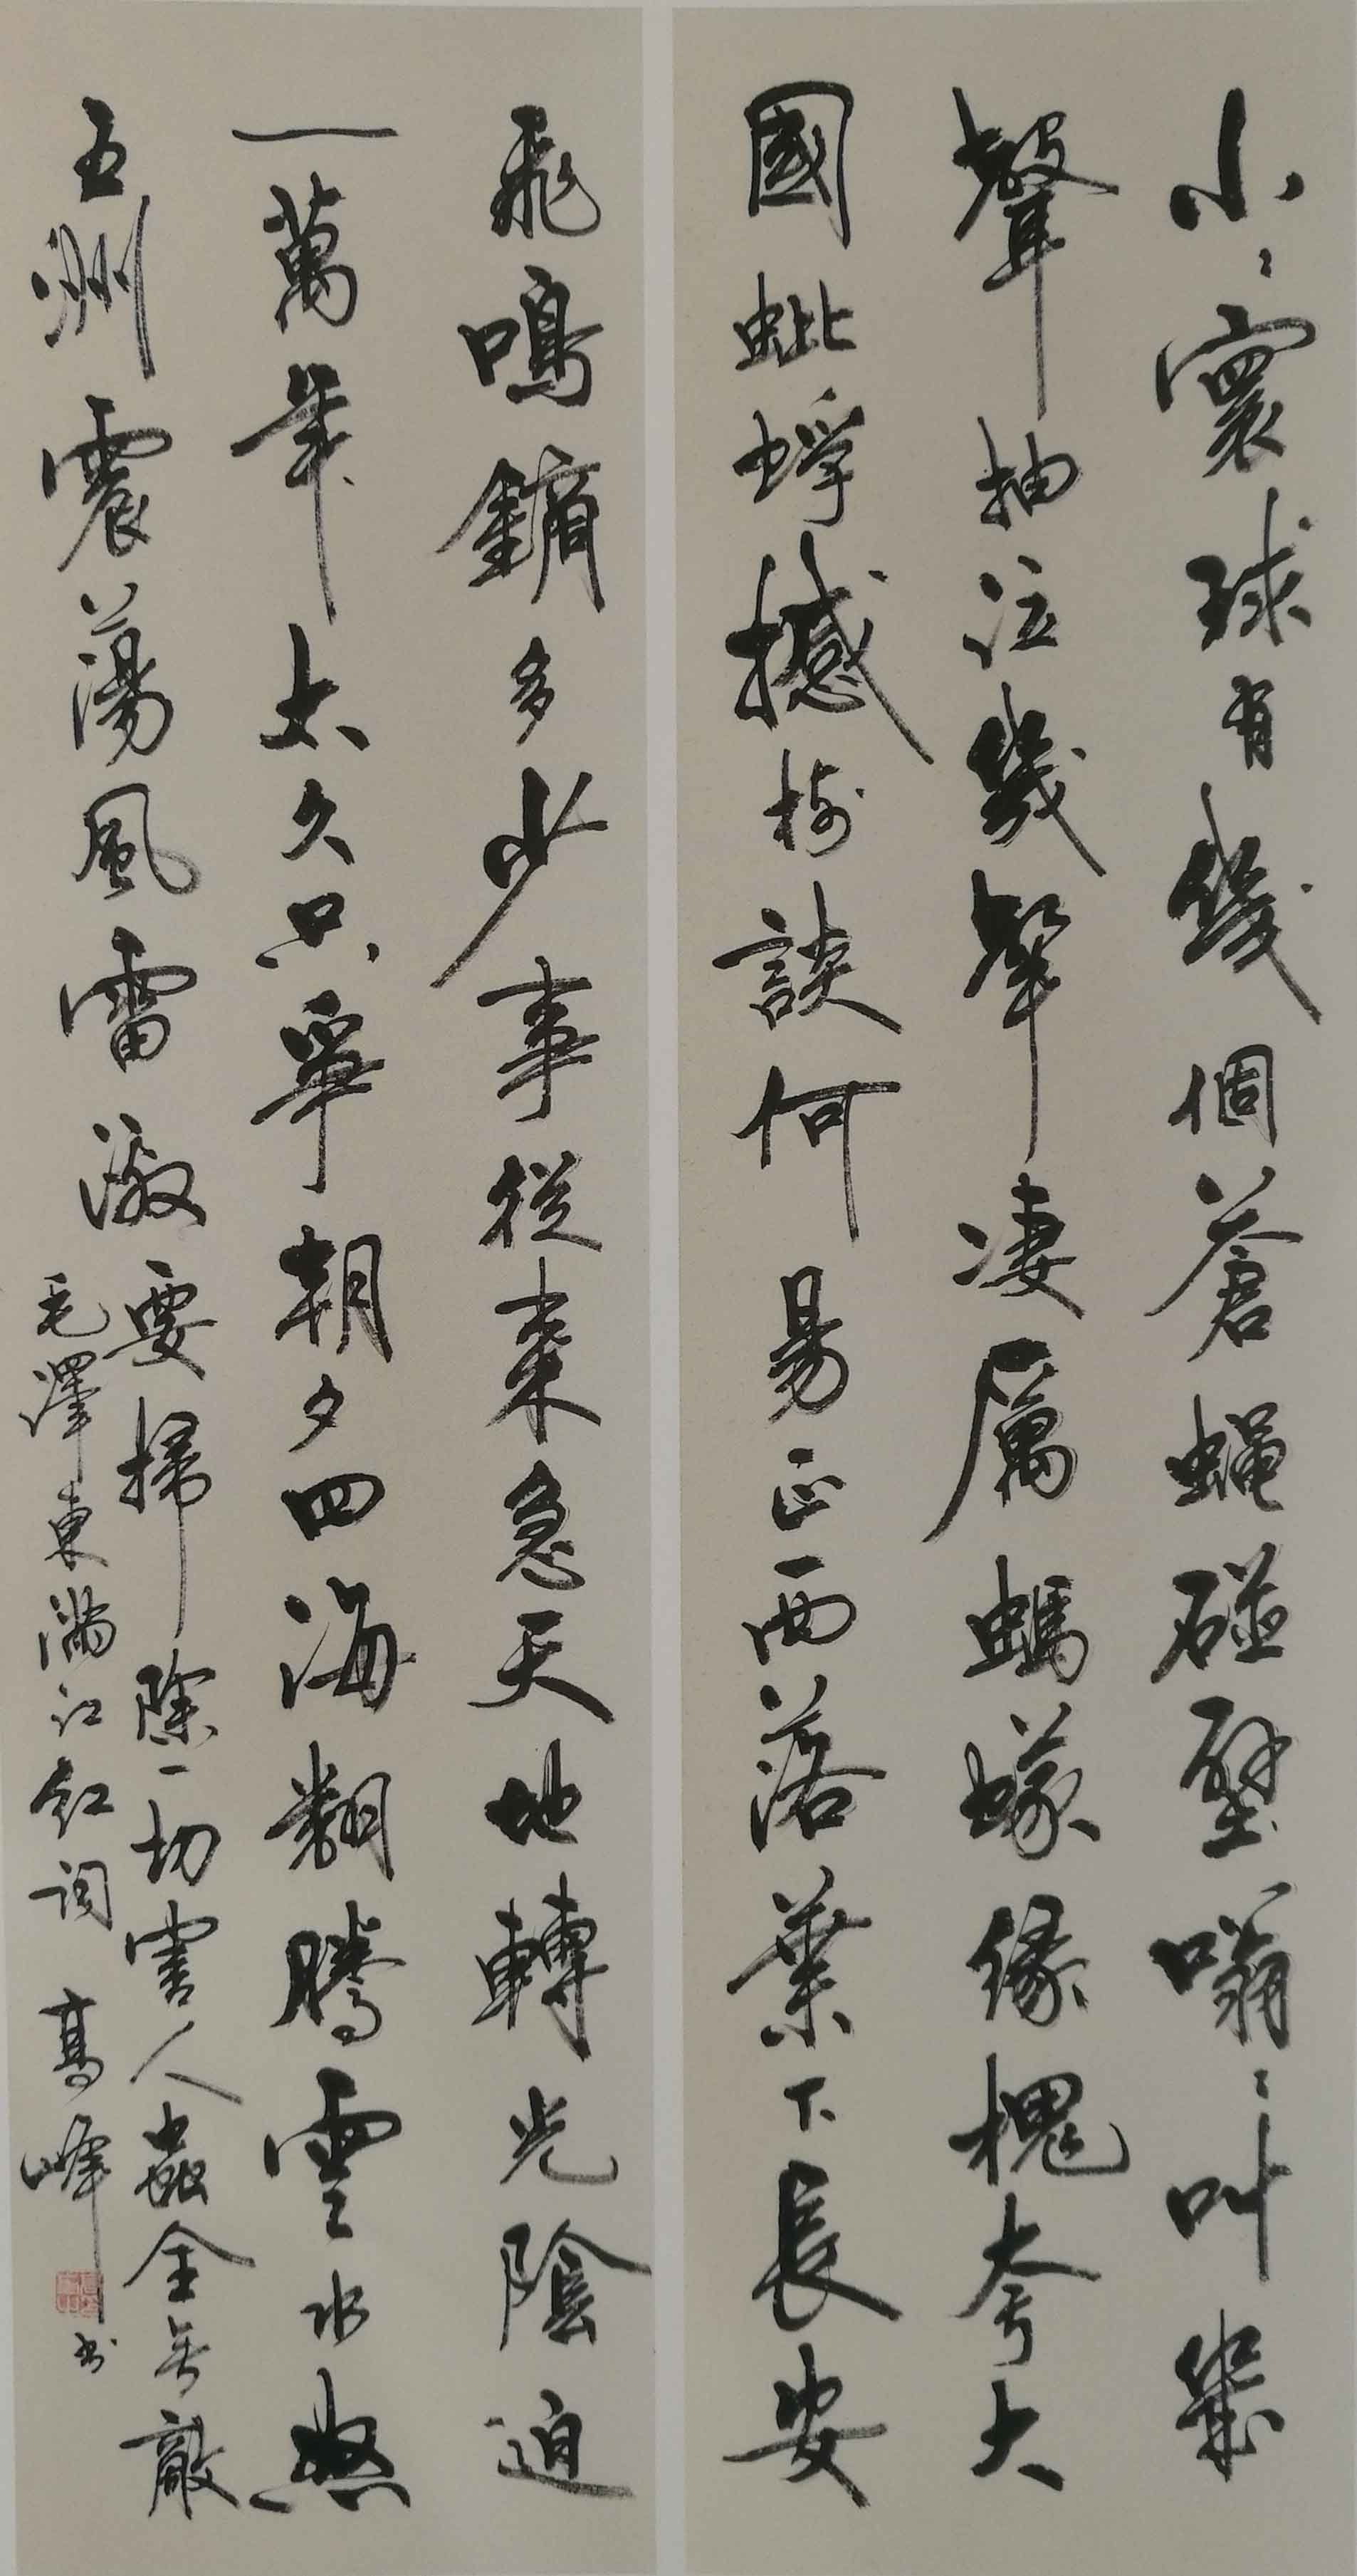 小小寰球有幾個蒼蠅碰壁嗡嗡叫幾
聲抽泣幾聲凄厲螞蟻緣槐夸大
國蚍蜉撼樹談何易正西落葉下長安
飛鳴鏑多少事從來急天地轉光陰迫
一萬年太久只爭朝夕四海翻騰雲水怒
五洲震蕩風雷激要掃除一切害人蟲全無敵
毛澤東滿江紅詞 高峰書